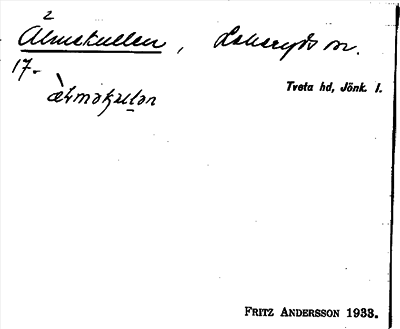 2
Almekullen, Lekeryds sn.
17.
Tveta hd, Jönk. l.
FRITZ ANDERSSON 1933.